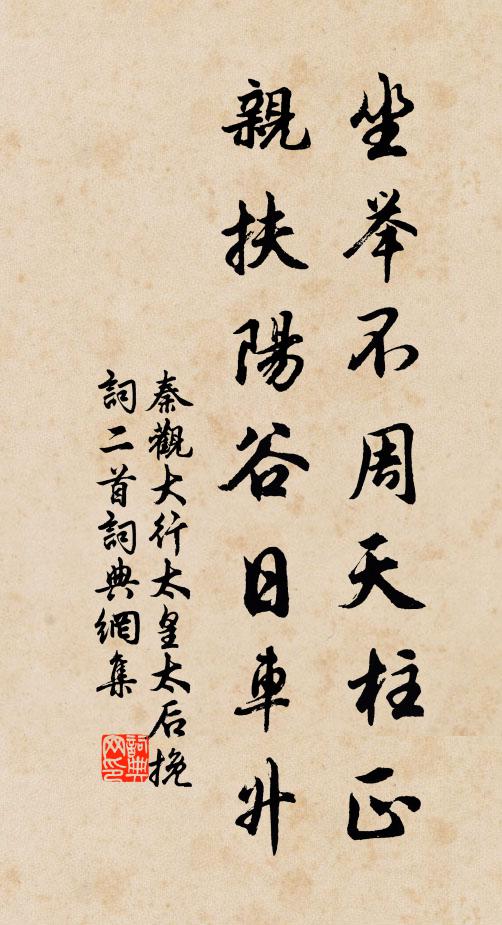 坐举不周天柱正
親扶陽谷日車升
秦觀大行太皇太后挽
詞二首詞典網集
詞典網印